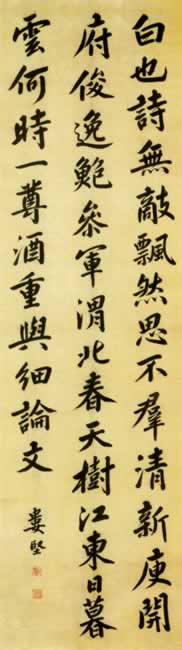 白也詩無敵飄然思不羣清新庾開
府俊逸鮑參軍渭北春天樹江東日暮
雲何時一尊酒重與細論文
婁堅